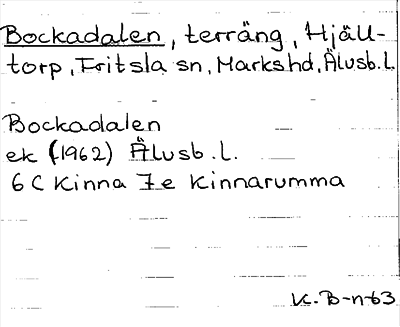 Bockadalen, terräng, Hjäll-
torp, Fritsla sn, Markshd, Älvsb. l.
Bockadalen
ek (1962) Älvsb. l.
6 C Kinna 7e Kinnarumma
K. B-n-63